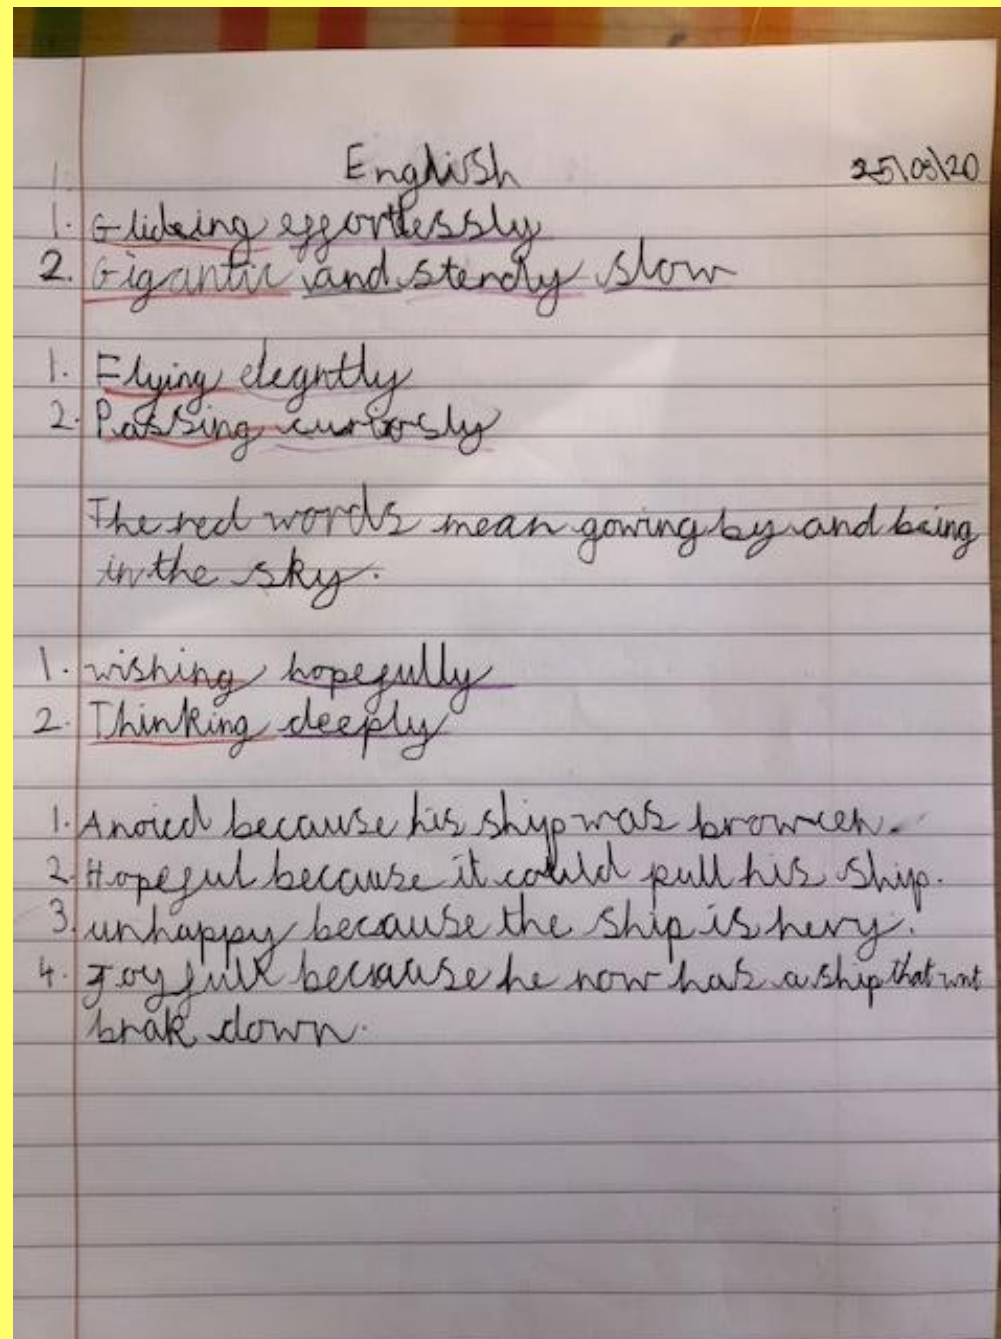 English 25\03\20
1. Glideing effortlessly
2. Gigantic and stendy slow
1. Flying elegntly
2. Passing curiorsly
The red words mean gowing by and being
in the sky.
1. wishing hopefully
2. Thinking deeply
1. Anoied because his ship was browcen.
2. Hopeful because it could pull his ship.
3. unhappy because the ship is hevy.
4. Joyfull because he now has a ship that wnt
brak down.